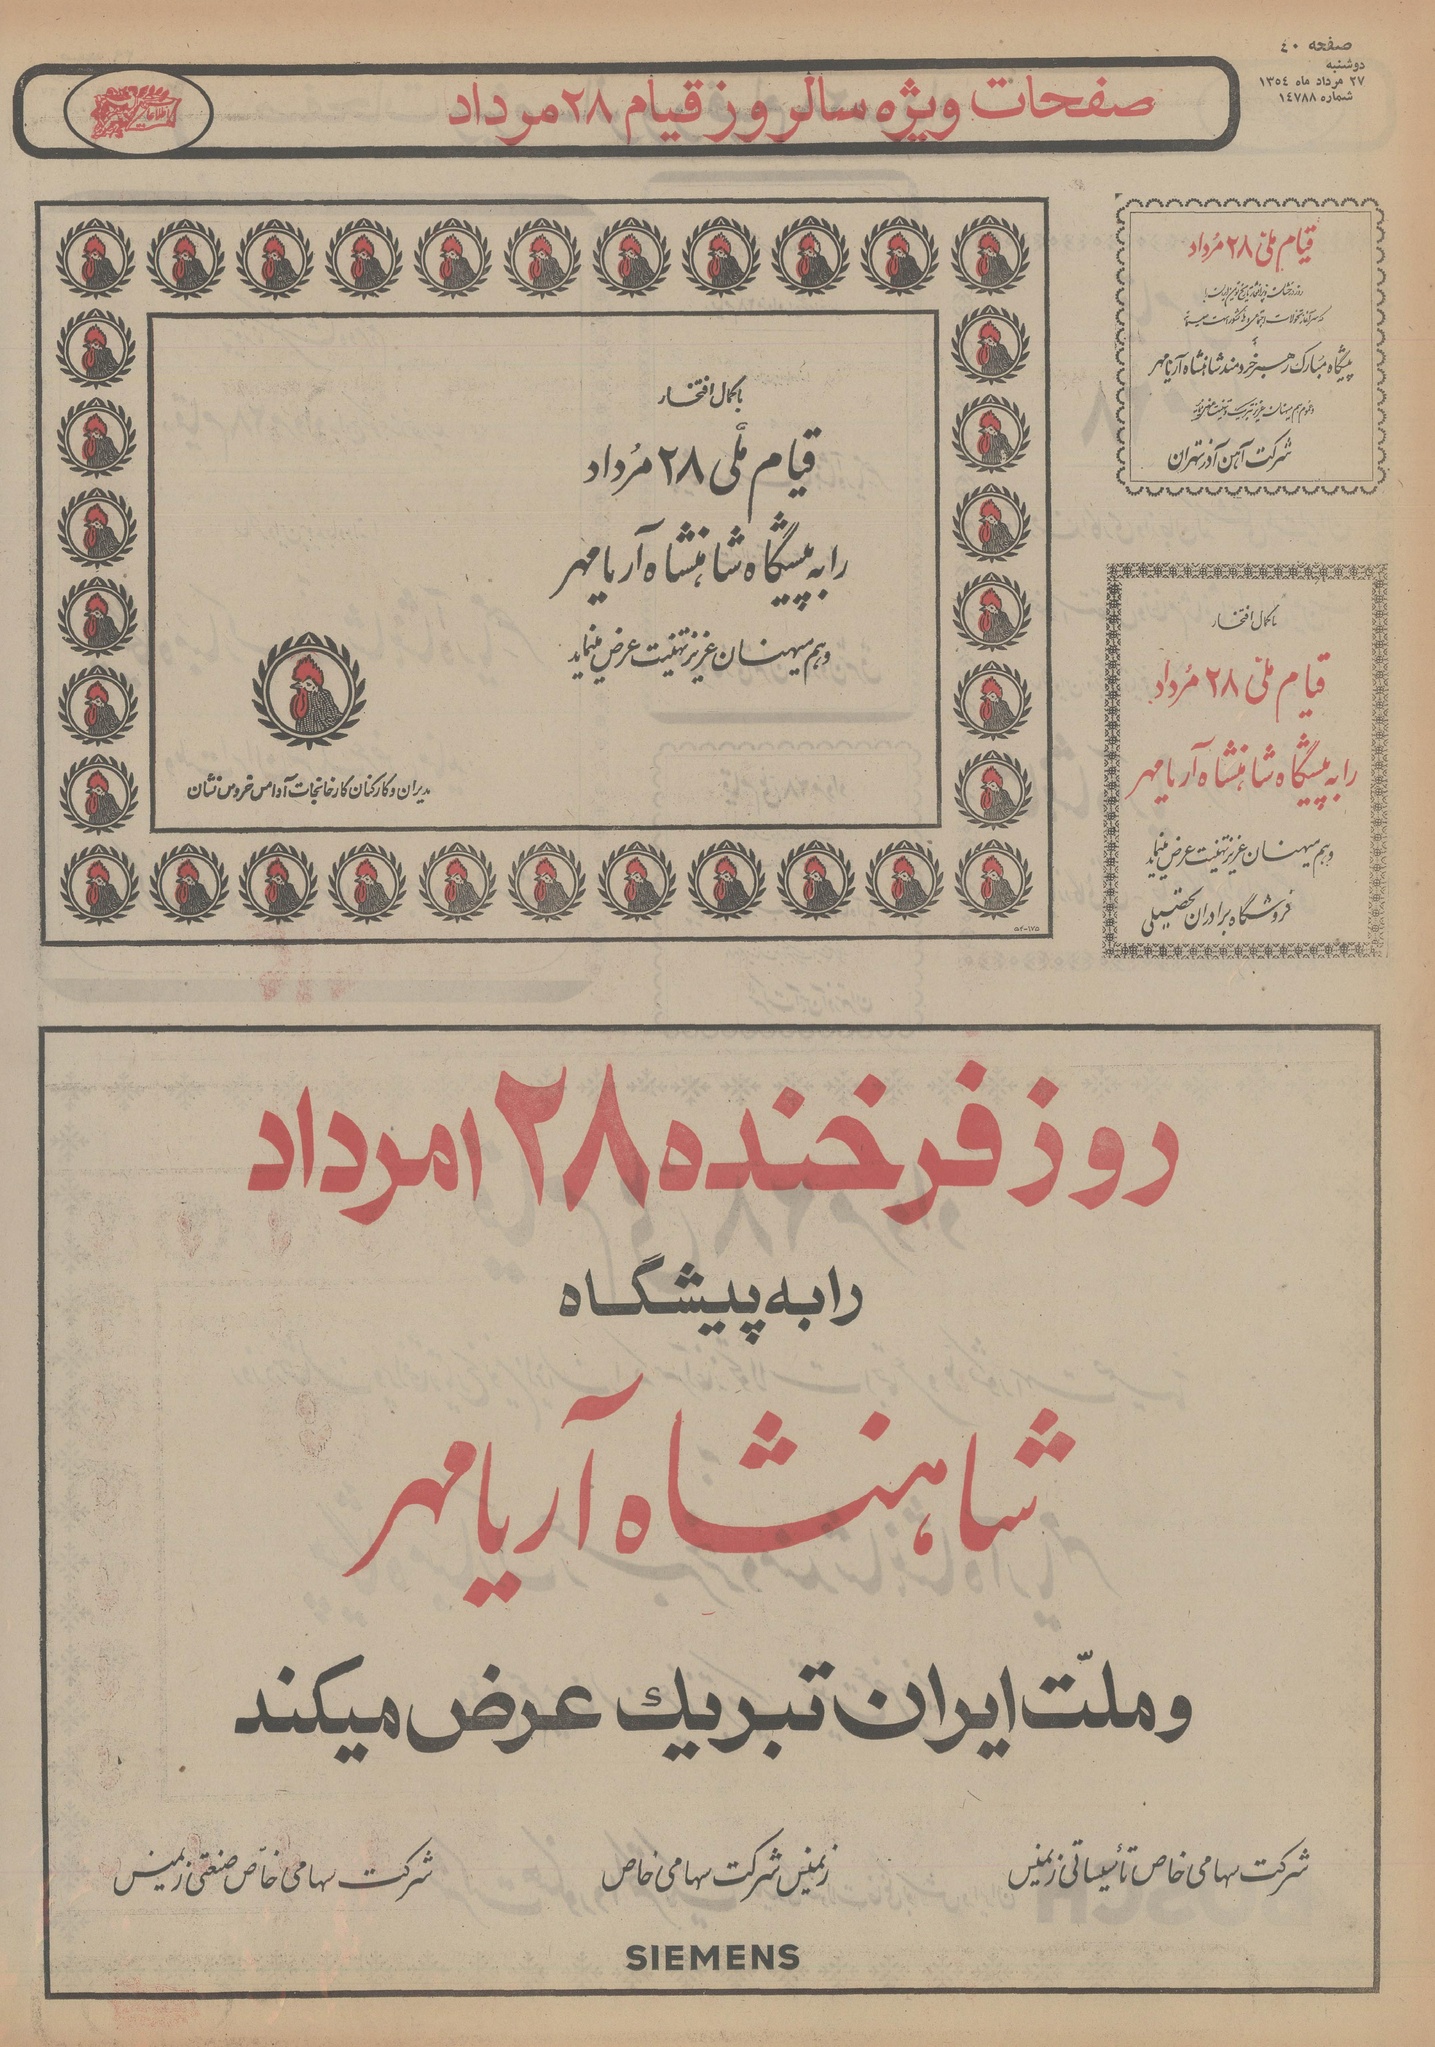 صفحه ۴۰
دوشنبه
۲۷ مرداد ماه ۱۳۵٤
شماره ۱٤۷۸۸
صفحات ویژه سالروز قیام ۲۸ مرداد
اطلاعات
قیام ملی ۲۸ مرداد
پیشگاه مبارک رهبر خردمند شاهنشاه آریامهر
شرکت آهن آذر تهران
با کمال افتخار
قیام ملی ۲۸ مُرداد
را به پیشگاه شاهنشاه آریامهر
و هم میهنان عزیز تهنیت عرض مینماید
فروشگاه برادران تحصیلی
با کمال افتخار
قیام ملّی ۲۸ مُرداد
را به پیشگاه شاهنشاه آریامهر
و هم میهنان عزیز تهنیت عرض مینماید
مدیران و کارکنان کارخانجات آدامس خروس نشان
۵۴-۱۷۵
روز فرخنده ۲۸ امرداد
را به پیشگاه
شاهنشاه آریامهر
و ملّت ایران تبریك عرض میکند
شرکت سهامی خاص تأسیساتی زیمنس
زیمنس شرکت سهامی خاص
شرکت سهامی خاص صنعتی زیمنس
SIEMENS